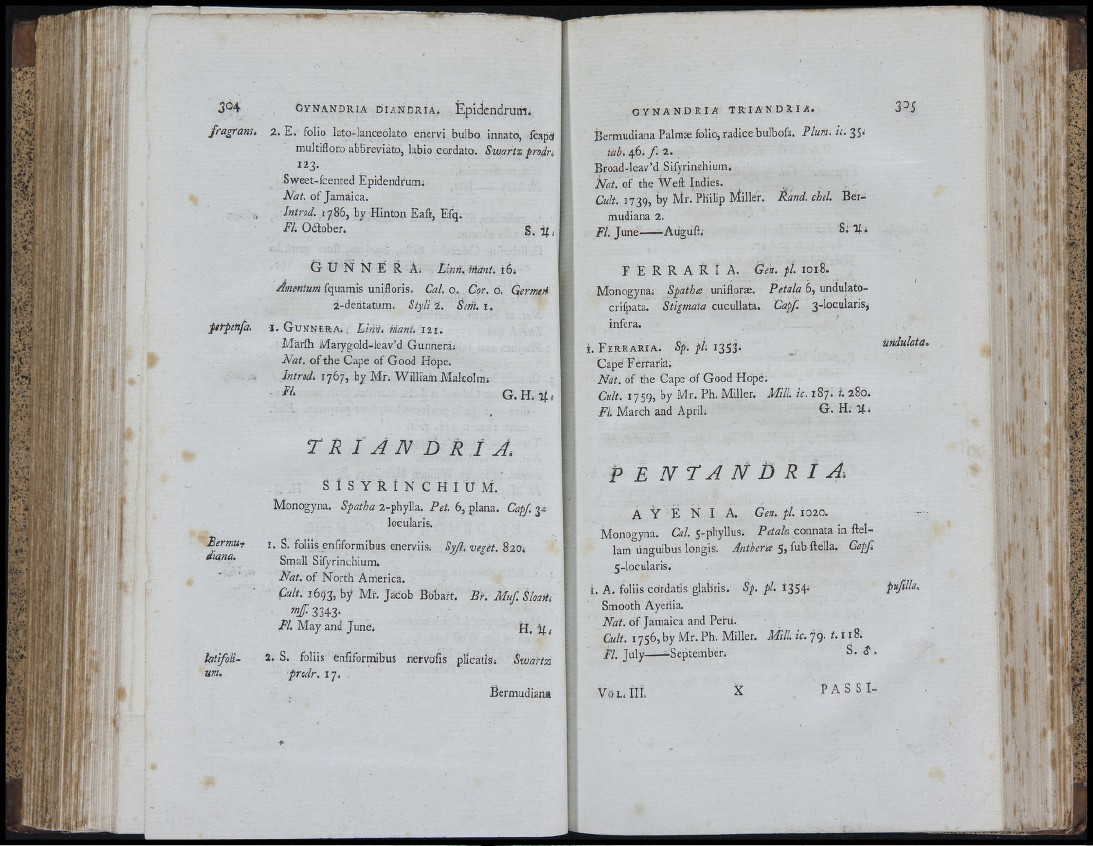 304 GYNANDRIA DIANDRIA. Epidendrum.
fragrans. 2. E. folio lato-lanceolato enervi bulbo innato, ſcapo
multifloro abbreviato, labio cordato. Swartz prodr.
123.
Sweet-ſcented Epidendrum.
Nat. of Jamaica.
Introd. 1786, by Hinton Eaſt, Eſq.
Fl. October. S. ♃.
GUNNERA. Linn. mant. 16.
Amentum ſquamis unifloris. Cal. 0. Cor. 0. Germen
2-dentatum. Styli 2. Sem. 1.
perpenſa. 1. GUNNERA. Linn. mant. 121.
Marſh Marygold-leav'd Gunnera.
Nat. of the Cape of Good Hope.
Introd. 1767, by Mr. William Malcolm.
Fl. G. H. ♃.
TRIANDRIA.
SISYRINCHIUM.
Monogyna. Spatha 2-phylla. Pet. 6, plana. Capſ. 3-
locularis.
Bermu- 1. S. foliis enſiformibus enerviis. Syſt. veget. 820.
diana. Small Siſyrinchium.
Nat. of North America.
Cult. 1693, by Mr. Jacob Bobart. Br. Muſ. Sloan.
mſſ. 3343.
Fl. May and June. H. ♃.
latifoli- 2. S. foliis enſiformibus nervoſis plicatis. Swartz
um. prodr. 17.
Bermudiana
GYNANDRIA TRIANDRIA. 305
Bermudiana Palmæ folio, radice bulboſa. Plum. ic. 35.
tab. 46. f. 2.
Broad-leav'd Siſyrinchium.
Nat. of the Weſt Indies.
Cult. 1739, by Mr. Philip Miller. Rand. chel. Ber-
mudiana 2.
Fl. June——Auguſt. S. ♃.
FERRARIA. Gen. pl. 1018.
Monogyna. Spathæ unifloræ. Petala 6, undulato-
criſpata. Stigmata cucullata. Capſ. 3-locularis,
infera.
1. FERRARIA. Sp. pl. 1353. undulata.
Cape Ferraria.
Nat. of the Cape of Good Hope.
Cult. 1759, by Mr. Ph. Miller. Mill. ic. 187. t. 280.
Fl. March and April. G. H. ♃.
PENTANDRIA.
AYENIA. Gen. pl. 1020.
Monogyna. Cal. 5-phyllus. Petala connata in ſtel-
lam unguibus longis. Antheræ 5, ſub ſtella. Capſ.
5-locularis.
1. A. foliis cordatis glabris. Sp. pl. 1354. puſilla.
Smooth Ayenia.
Nat. of Jamaica and Peru.
Cult. 1756, by Mr. Ph. Miller. Mill. ic. 79. t. 118.
Fl. July——September. S. ♂.
VOL. III. X PASSI-